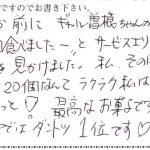 ですのでお書き下さい。
前に ギャル曽根ちゃんが
食べましたー」と サービスエリ
を 見かけました。私、その
20個なんて ラクラク 私は
っと! 最高なお菓子です
では ダントツ 1位です♡